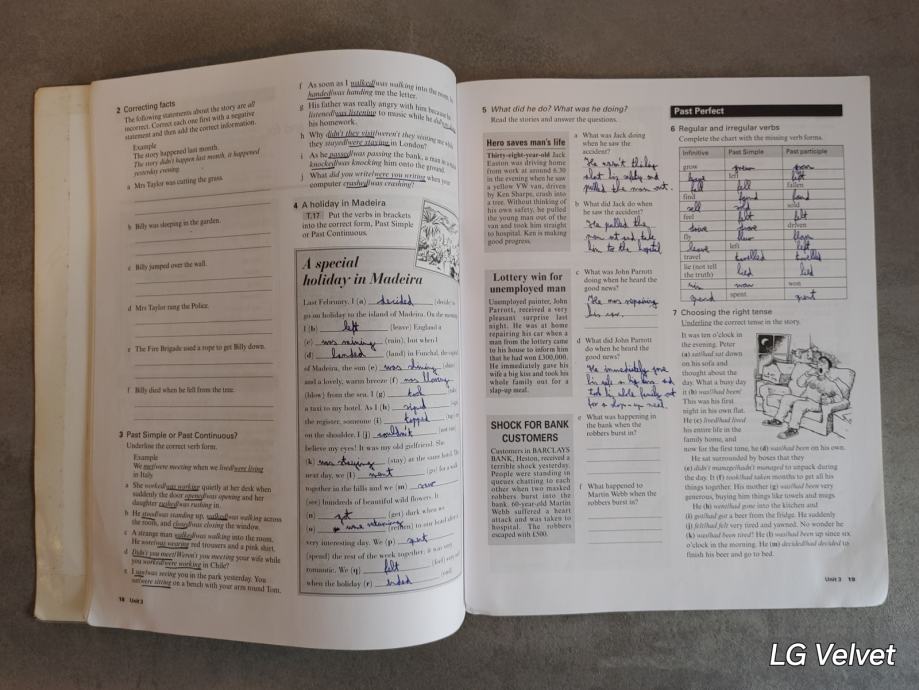 2 Correcting facts
The following statements about the story are all
incorrect. Correct each one first with a negative
statement and then add the correct information.
Example
The story happened last month.
the story didn't happen last month, it happened
yesterday evening.
a Mrs Taylor was cutting the grass.
b Billy was sleeping in the garden.
c Billy jumped over the wall.
d Mrs Taylor rang the Police.
e The Fire Brigade used a rope to get Billy down.
f Billy died when he fell from the tree.
3 Past Simple or Past Continuous?
Underline the correct verb form.
Example
We met/were meeting when we lived/were living
in Italy.
a She worked/was working quietly at her desk when
suddenly the door opened/was opening and her
daughter rushed/was rushing in.
b He stood/was standing up, walked/was walking across
the room, and closed/was closing the window.
c A strange man walked/was walking into the room.
He wore/was wearing red trousers and a pink shirt.
d Didn't you meet/Weren't you meeting your wife while
you worked/were working in Chile?
e I saw/was seeing you in the park yesterday. You
sat/were sitting on a bench with your arm round Tom.
18 Unit 3
f As soon as I walked/was walking into the room,
handed/was handing me the letter.
g His father was really angry with him because he
listened/was listening to music while he
his homework.
h Why didn't they visit/weren't they visiting me while
they stayed/were staying in London?
i As he passed/was passing the bank, a man in a
knocked/was knocking him onto the ground.
j What did you write/were you writing when your
computer crashed/was crashing?
4 A holiday in Madeira
T.17 Put the verbs in brackets
into the correct form, Past Simple
or Past Continuous.
A special
holiday in Madeira
Last February, I (a) decided (decide) to
go on holiday to the island of Madeira. On the
I (b) left (leave) England it
(c) was raining (rain), but when I
(d) landed (land) in Funchal, the
of Madeira, the sun (e) was shining
and a lovely, warm breeze (f) was blowing
(blow) from the sea. I (g) took
a taxi to my hotel. As I (h) signed
the register, someone (i) tapped
on the shoulder. I (j) couldn't
believe my eyes! It was my old girlfriend. She
(k) was staying (stay) at the same hotel.
next day, we (l) went (go) for a
together in the hills and we (m) saw
(see) hundreds of beautiful wild flowers. It
(n) got (get) dark when we
(o) to our hotel after a
very interesting day. We (p) spent
(spend) the rest of the week together, it was very
romantic. We (q) felt (feel)
when the holiday (r) ended (end).
5 What did he do? What was he doing?
Read the stories and answer the questions.
Hero saves man's life
Thirty-eight-year-old Jack
Easton was driving home
from work at around 6.30
in the evening when he saw
a yellow VW van, driven
by Ken Sharpe, crash into
a tree. Without thinking
of his own safety, he pulled
the young man out of the
van and took him straight
to hospital. Ken is making
good progress.
a What was Jack doing
when he saw the
accident?
pulled the man out.
b What did Jack do when
he saw the accident?
He pulled the
man out and
to the hospital
Lottery win for
unemployed man
Unemployed painter, John
Parrott, received a very
pleasant surprise last
night. He was at home
repairing his car when a
man from the lottery came
to his house to inform him
that he had won £300,000.
He immediately gave his
wife a big kiss and took his
whole family out for a
slap-up meal.
c What was John Parrott
doing when he heard the
good news?
He was repairing
his car.
d What did John Parrott
do when he heard the
good news?
He immediately gave
his wife a big kiss and
took his whole family out
for a slap-up meal.
SHOCK FOR BANK
CUSTOMERS
Customers in BARCLAYS
BANK, Heston, received a
terrible shock yesterday.
People were standing in
queues chatting to each
other when two masked
robbers burst into the
bank. 60-year-old Martin
Webb suffered a heart
attack and was taken to
hospital. The robbers
escaped with £500.
e What was happening in
the bank when the
robbers burst in?
f What happened to
Martin Webb when the
robbers burst in?
Past Perfect
6 Regular and irregular verbs
Complete the chart with the missing verb forms.
Infinitive Past Simple Past participle
grow
left left
fall fell fallen
find found found
sell sold sold
feel felt felt
drive drove driven
fly flew flown
leave left left
travel travelled travelled
lie (not tell
the truth) lied lied
win won won
spend spent spent
7 Choosing the right tense
Underline the correct tense in the story.
It was ten o'clock in
the evening. Peter
(a) sat/had sat down
on his sofa and
thought about the
day. What a busy day
it (b) was/had been!
This was his first
night in his own flat.
He (c) lived/had lived
his entire life in the
family home, and
now for the first time, he (d) was/had been on his own.
He sat surrounded by boxes that they
(e) didn't manage/hadn't managed to unpack during
the day. It (f) took/had taken months to get all his
things together. His mother (g) was/had been very
generous, buying him things like towels and mugs.
He (h) went/had gone into the kitchen and
(i) got/had got a beer from the fridge. He suddenly
(j) felt/had felt very tired and yawned. No wonder he
(k) was/had been tired! He (l) was/had been up since six
o'clock in the morning. He (m) decided/had decided to
finish his beer and go to bed.
Unit 3 19
LG Velvet